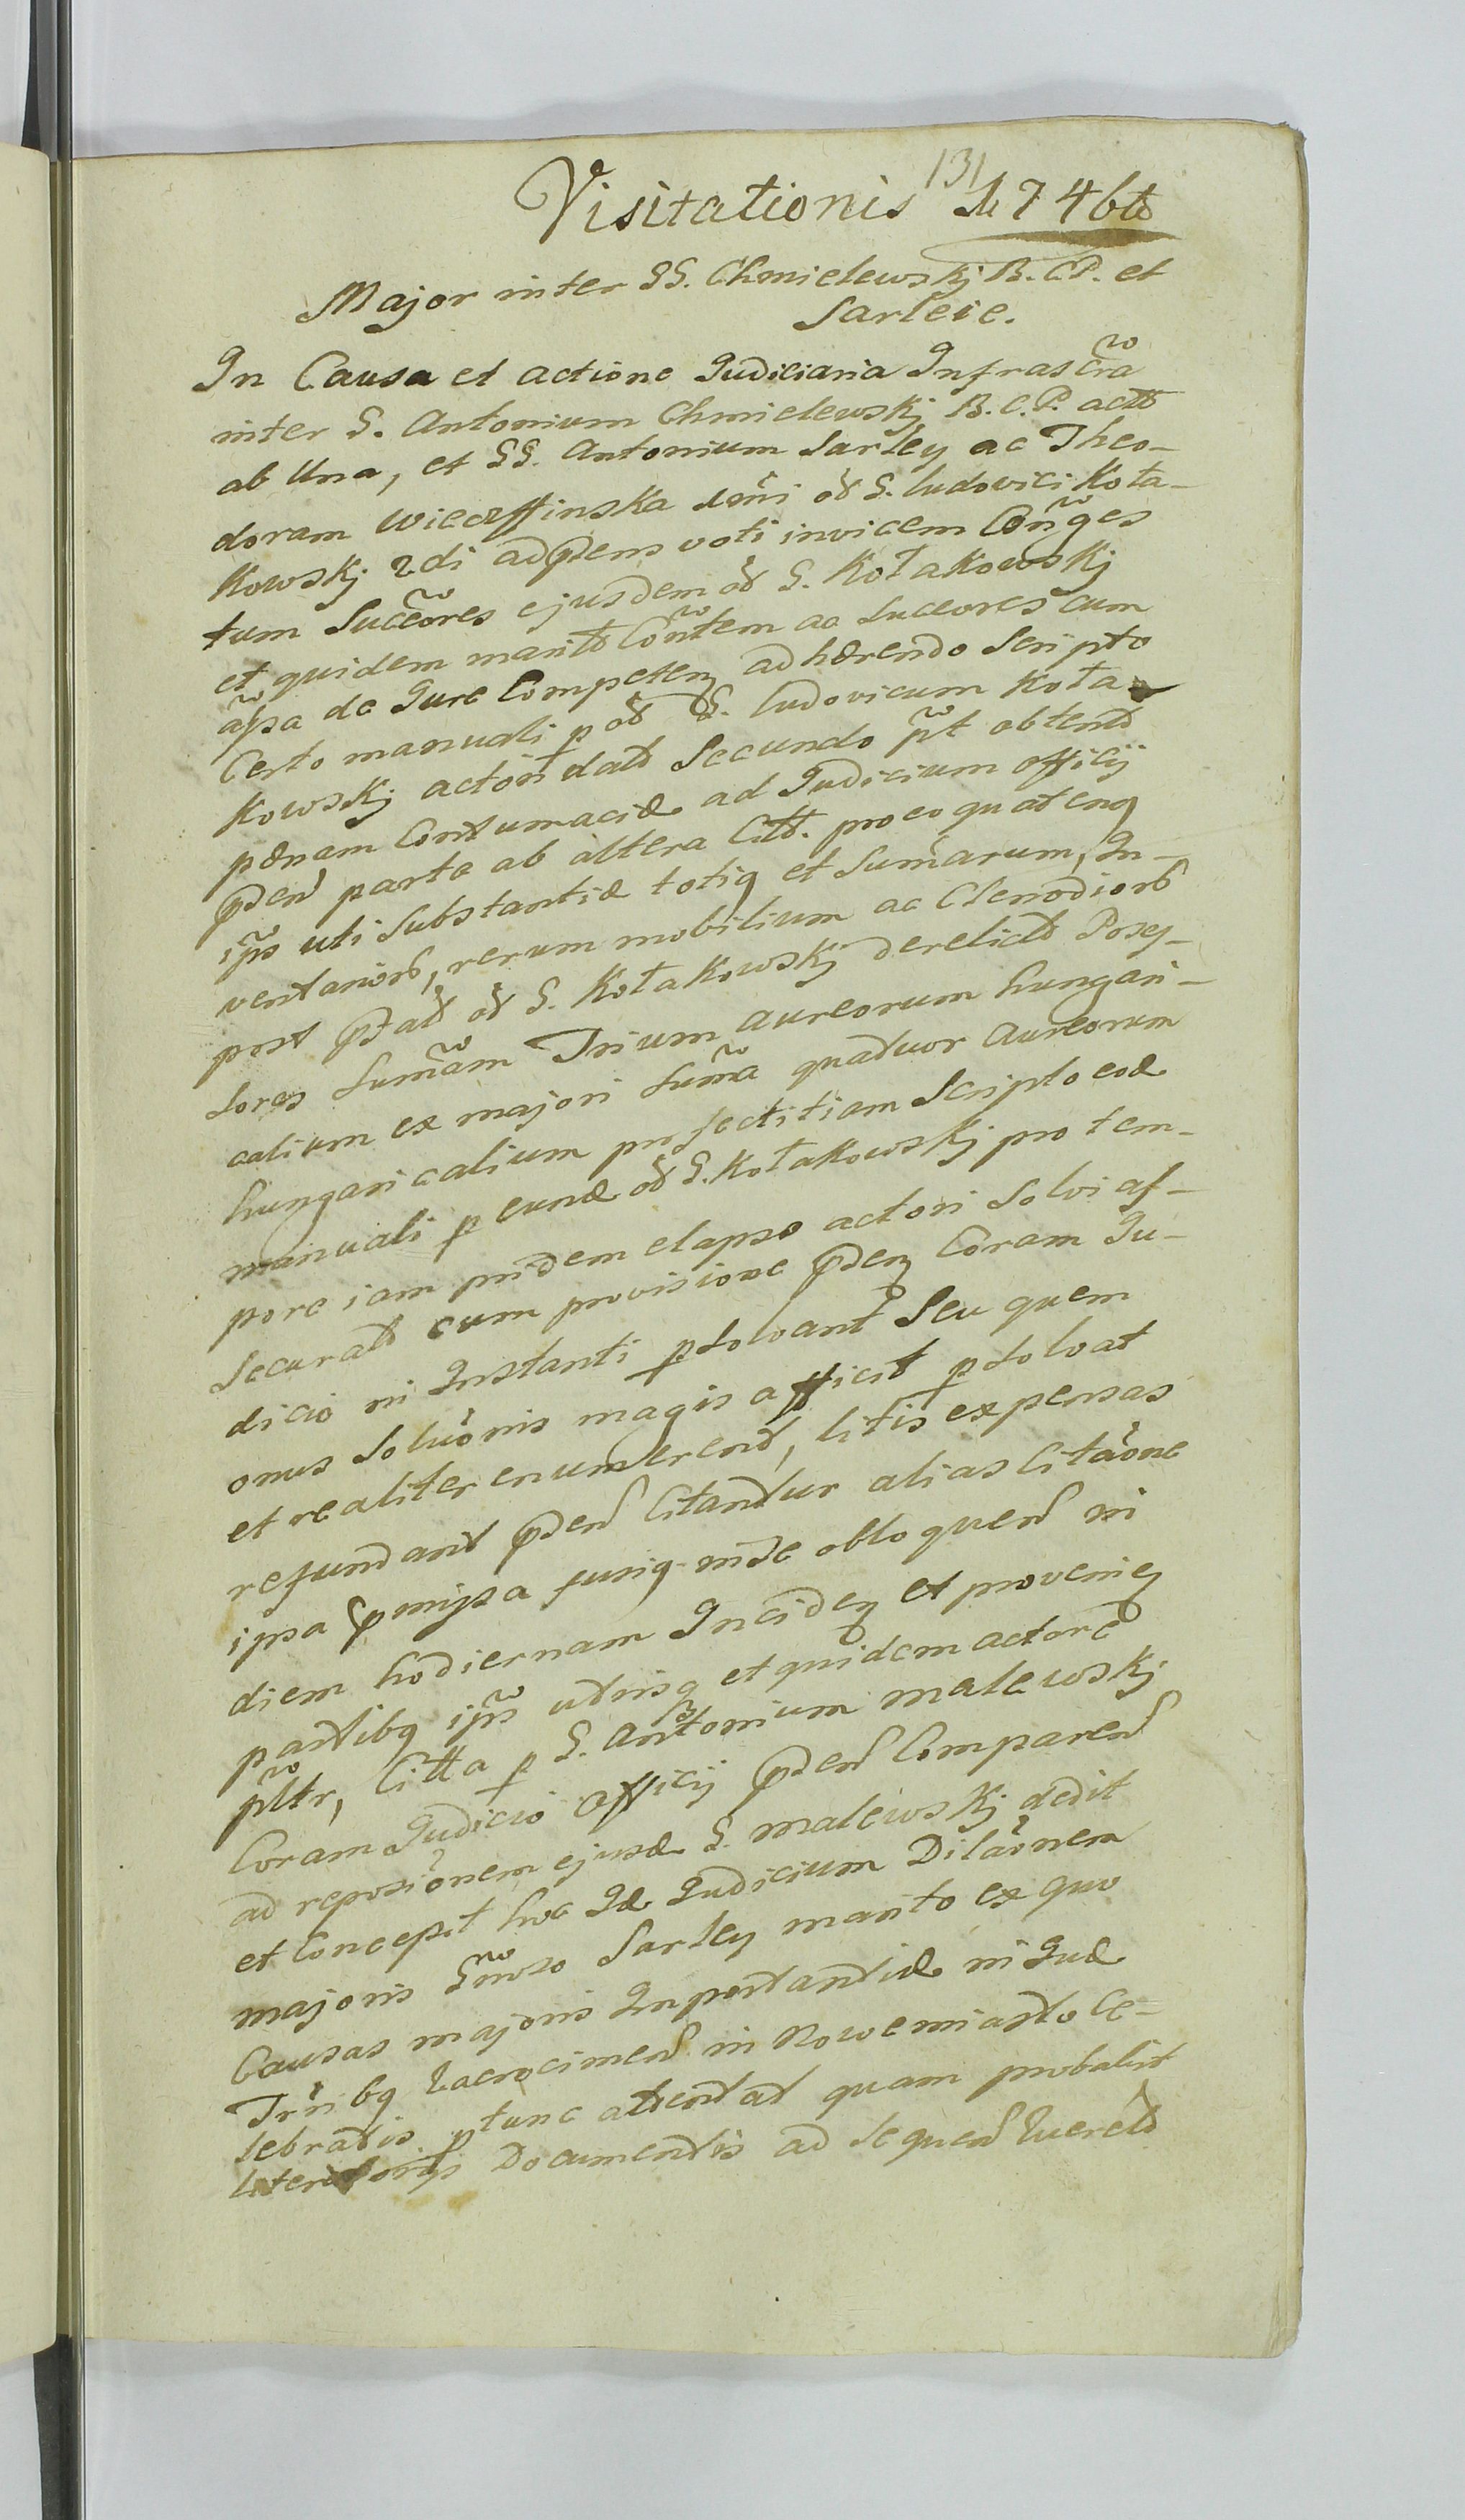 131
Visitationis 1746to
Major inter GG. Chmielewskj B. C. P. et
Sarleie.
In Causa et actione Judiciaria Infrascra
inter G. Antonium Chmielewskj B. C. P. acto
ab Una, et GG. Antonium Sarley ac Theo-
doram 
Kowskj 2di adpdens voti invicem Conges
tum Succeores ejusdem od G. Kołakowskj
et quidem marito Contem ac Succeores cum
apsa de Jure Competenq adhærendo Scripto
Certo manuali p od G. Ludovicum Koła-
Kowskj actori dato Secundo prt obtento
pænam Contumaciæ ad Judicium officij
pden parte ab altera Citt. proeo quatenq
ips uti Substantiæ totiq et Sumarum, In-
ventariorb, rerum mobilium ac Clenodiorb
post pdad od G. Kołakowskj derelicto Posej-
sores Sumam Trium aureorum hungari-
calium ex majori Suma quatuor Aureorum
hungaricalium profectitiam Scripto eod
manuali p eund od G. Kołakowskj pro tem-
pore iam pridem elapso actori Solvi as-
securato cum provisione pdenq Coram Ju-
dicio in Instanti psolvant Seu quem
onus Soluonis magis afficit psolvat
et realiter enumerent, litis expensas
refundant pden Citantur alias Citaone
ipsa pmissa fusiq inde obloquen in
diem hodiernam Incidenq et provenienq
partibq ips utrisq et quidem actore
pltr, Citta p G. Antonium Malewskj
Coram Judicio Officij pden Comparen
ad reposionem ejusd G. Malewskj dedit
et Concepit hoc Id Judicium Dilaonem
majoris Gnroso Sarley marito ex quo
Causas majoris Importantiæ in Jud
Tribq Zacrocimen in Nowemiasto Ce-
lebratis ptunc attentat quam probabit
literatorijs Documentis ad Sequen